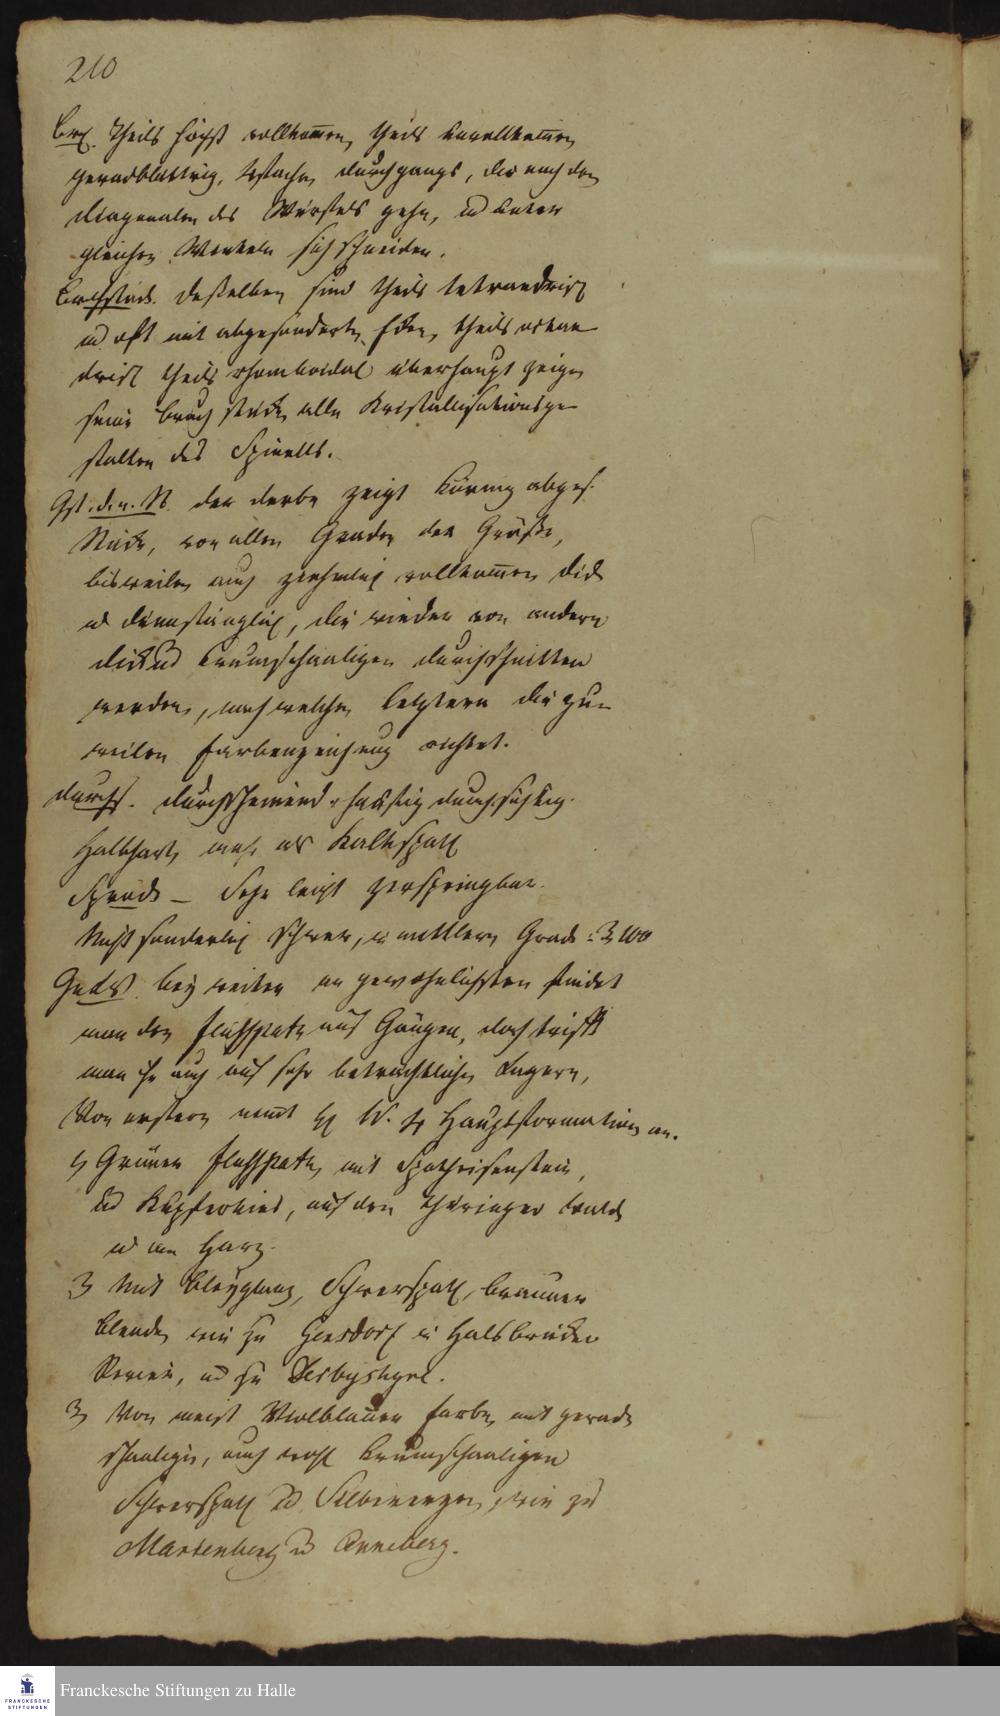 210
Br. Theils höchst vollkommen, theils unvollkommen
geradblättrig, 4fachen durchgangs, die nach den
diagonalen des Würfels gehn, und unter
gleichen Winkeln sich schneiden.
Bruchstück. desselben sind theils tetraedrisch
und oft mit abgesonderten theils octae-
drisch theils rhomboidal überhaupt zeigen
seine Bruchstücke alle Kristallisationsge-
stalten des Spinells.
Gst. d. a. St. der derbe zeigt körnig abges.
Stücke, von allen Graden der Größe,
bisweilen auch ziehmlich vollkommen dick
und dünnstänglich, die wieder von andern
dick und krummschaaligen durchschnitten
werden, nach welchen letztern die zu-
weilen Farbenzeichnung richtet.
durchs. durchscheinend, häufig durchsichtig.
Halbhart, mehr als Kalkspath
Spröde – Sehr leicht zerspringbar.
Nicht sonderlich schwer, mittlern Grads
bey weiten am gewöhnlichsten findet
man den Flußspath auf Gängen, doch trifft
man ihn auch auf sehr beträchtlichen Lagern,
Von erstern nimt H W. 4 Hauptformation an.
1, Grünen Flußspath, mit Spatheisenstein,
und Kupferkies, auf den Thüringer Wald
und am Harz.
2, Mit Bleyglanz, Schwerspath, brauner
Blende, wie zu Gersdorf Halsbrücker
Revier, und zu Derbyshyre.
3, Von meist Violblauer Farbe, mit gerade
schaaligen, auch wohl krummschaaligen
Schwerspath und Silbererzen, wie zu
Marienberg und Anneberg.
Franckesche Stiftungen zu Halle
FRANCKESCHE
STIFTUNGEN